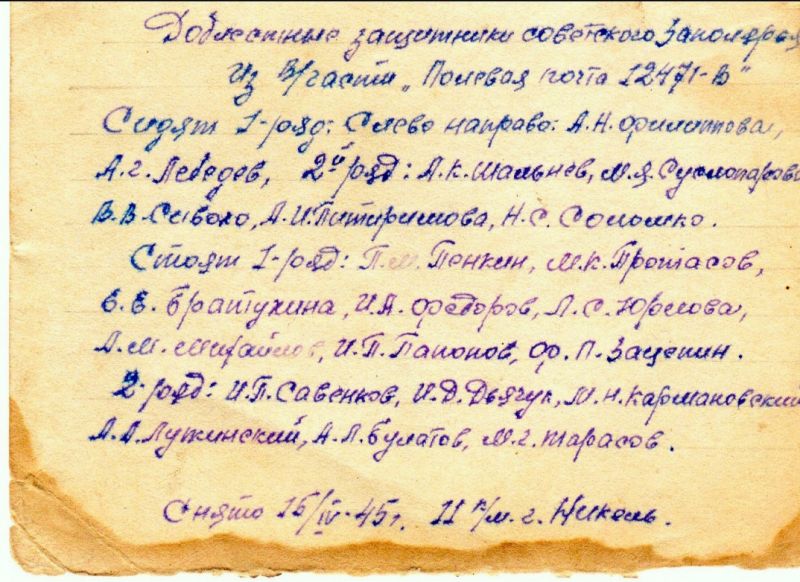 Доблестные защитники советского Заполярья
Из в/части „Полевая почта 12471-В"
Сидят 1-ряд: Слево направо: А.Н. Филиппова,
А.Г. Лебедев, 2й ряд: А.К. Шальнев, М.Я. Суслопарова
В.В. Сиволо, А.И. Питиримова, Н.С. Соломко.
Стоят 1-ряд: П.М. Пенкин, М.К. Протасов,
Е.Е. Братухина, И.А. Федоров, Л.С. Юрлова,
А.М. Михайлов, И.П. Папонов, Ф.П. Зацепин.
2-ряд: И.П. Савенков, И.Д. Дьячук, М.Н. Кармановский
А.А. Лужинский, А.Л. Булатов, М.Г. Тарасов.
Снято 15/IV-45г. 11 к/м. г. Никель.